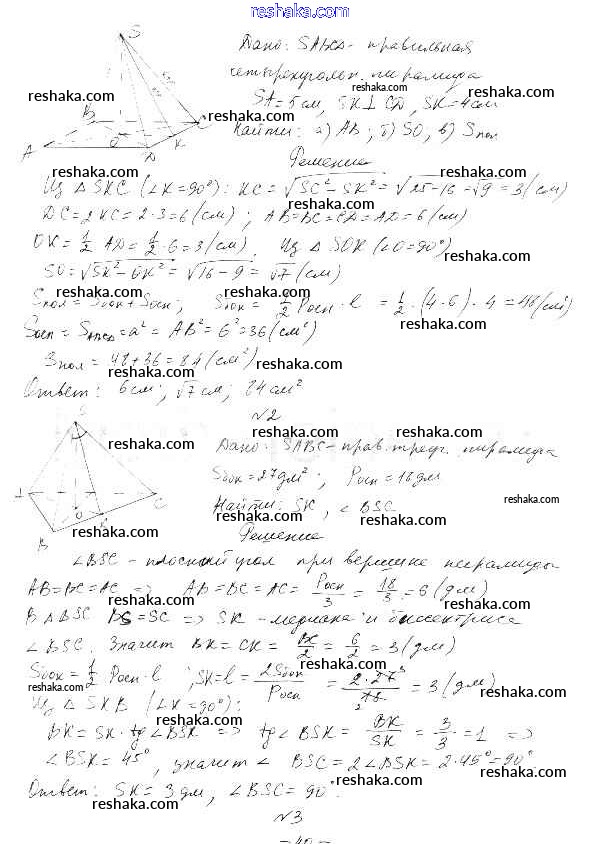 reshaka.com
S
Дано: SABCD - правильная
четырехугольн. пирамида
SA = 5 см, SK ⊥ CD, SK = 4 см
Найти: а) AB; б) SO, в) Sпол
B
A O D K C
Решение
Из △ SKC (∠K = 90°): KC = √SC² - SK² = √25 - 16 = √9 = 3 (см)
DC = 2 KC = 2 · 3 = 6 (см); AB = BC = CD = AD = 6 (см)
OK = 1/2 AD = 1/2 · 6 = 3 (см). Из △ SOK (∠O = 90°)
SO = √SK² - OK² = √16 - 9 = √7 (см)
Sпол = Sбок + Sосн; Sбок = 1/2 Pосн · l = 1/2 · (4 · 6) · 4 = 48 (см²)
Sосн = SABCD = a² = AB² = 6² = 36 (см²)
Sпол = 48 + 36 = 84 (см²)
Ответ: 6 см; √7 см; 84 см²
N2
S
Дано: SABC - прав. треуг. пирамида
Sбок = 27 дм²; Pосн = 18 дм
Найти: SK, ∠ BSC
O K C
B
Решение
∠BSC - плоский угол при вершине пирамиды
AB = BC = AC ⇒ AB = BC = AC = Pосн/3 = 18/3 = 6 (дм)
В △ BSC BS = SC ⇒ SK - медиана и биссектриса
∠ BSC. Значит BK = CK = BC/2 = 6/2 = 3 (дм)
Sбок = 1/2 Pосн · l; SK = l = 2Sбок/Pосн = 2 · 27/18 = 3 (дм)
Из △ SKB (∠K = 90°):
BK = SK · tg ∠BSK ⇒ tg ∠ BSK = BK/SK = 3/3 = 1 ⇒
∠BSK = 45°, значит ∠ BSC = 2∠BSK = 2 · 45° = 90°.
Ответ: SK = 3 дм, ∠BSC = 90°.
N3
- 40 -